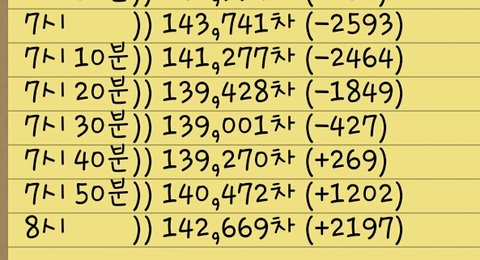 7시 )) 143,741차 (-2593)
7시 10분)) 141,277차 (-2464)
7시 20분)) 139,428차 (-1849)
7시 30분)) 139,001차 (-427)
7시 40분)) 139,270차 (+269)
7시 50분)) 140,472차 (+1202)
8시 )) 142,669차 (+2197)